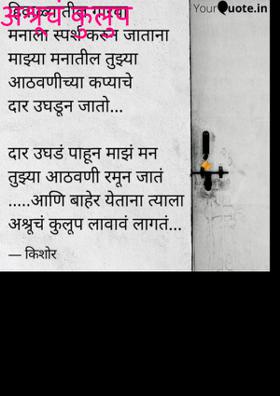 YourQuote.in
अश्रूचं कुलुप
मनाला स्पर्श करुन जाताना
माझ्या मनातील तुझ्या
आठवणीच्या कप्याचे
दार उघडून जातो...
दार उघडं पाहून माझं मन
तुझ्या आठवणी रमून जातं
.....आणि बाहेर येताना त्याला
अश्रूचं कुलूप लावावं लागतं...
— किशोर